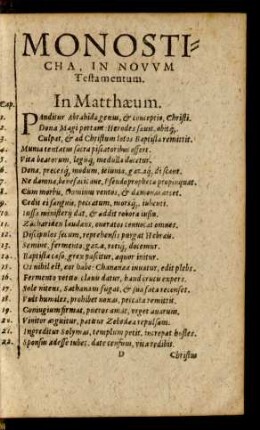 MONOSTI-
CHA, IN NOVVM
Testamentum.
In Matthæum.
Cap.
1. Panditur Abrahidæ genus, & conceptio, Christi.
2. Dona Magi portant Herodes sæuit, obitq́;
3. Culpat, & ad Christum lotos Baptista remittit.
4. Munia tentatus sacra piscatoribus offert.
5. Vita beatorum, legisq́; medulla docetur.
6. Dona, precesq́; modum, ieiunia, gaza, discunt.
7. Ne damna, benefac,
8. Cum morbis, Dominus ventos, & dæmonas arcet.
9. Cedit ei sanguis, peccatum, morsq́;
10. Iussa ministerij dat, & addit robora
11. Zachariden laudans, euersos
12. Discipulos secum, reprehensos purgat Hebræis.
13. Semine, fermento, gaza, retiq́; docemur.
14. Baptista cæso, grex pascitur, æquor initur.
15. Os nihil est, cor habe: Chananæa
16. Fermento vetito claues datur, haud crucis expers.
17. Sole nitens, Sathanam fugat, & sua fata recenset.
18. Vult humiles, prohibet noxas, peccata remittit.
19. Coniugium firmat, pueros amat, vrget auarum.
20. Vinitor æquatur, patitur Zebedæa repulsam.
21. Ingreditur Solymas, templum petit, increpat hostes.
22. Sponsis adesse iubet, date censum, vita redibit.
D
Christus